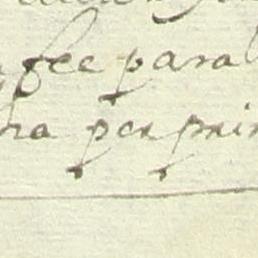 fee para
ha per prin